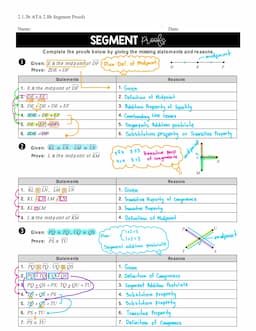 2.1.3b ATA 2.8b Segment Proofs
Name:
Date:
SEGMENT Proofs
Complete the proofs below by giving the missing statements and reasons.
1 Given: E is the midpoint of DF
Prove: 2DE = DF
Plan: Def. of Midpoint
midpoint
Statements
Reasons
1. E is the midpoint of DF
1. Given
2. DE = EF
2. Definition of Midpoint
3. DE + DE = EF + DE
3. Addition Property of Equality
4. 2DE = EF + DE
4. Combining like terms
5. DE + EF = DF
5. Segment Addition postulate
6. 2DE = DF
6. Substitution property or Transitive Property
2 Given: KL ≅ LN, LM ≅ LN
Prove: L is the midpoint of KM
midpoint
Statements
Reasons
1. KL ≅ LN, LM ≅ LN
1. Given
2. KL ≅ LM
2. Transitive Property of Congruence
3. Transitive Property
4. L is the midpoint of KM
4. Definition of Midpoint
3 Given: PQ ≅ TQ, UQ ≅ QS
Prove: PS ≅ TU
Segment addition postulate
Statements
Reasons
1. PQ ≅ TQ, UQ ≅ QS
1. Given
2. PQ = TQ, UQ = QS
2. Definition of Congruence
3. PQ + QS = PS, TQ + QU = TU
3. Segment Addition Postulate
4. Substitution property
5. Substitution property
6. PS = TU
6. Transitive Property
7. PS ≅ TU
7. Definition of Congruence